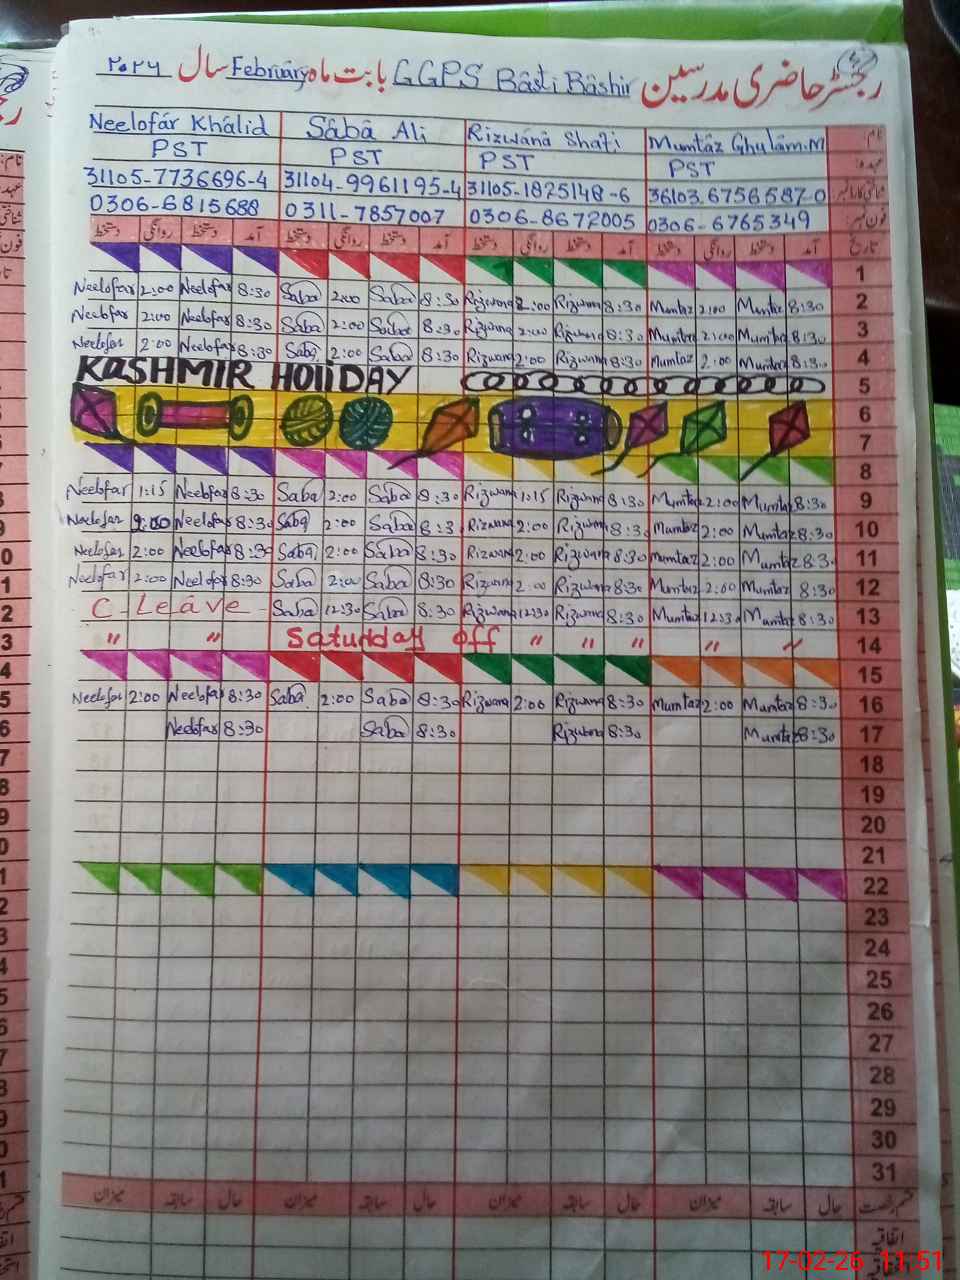 رجسٹر حاضری مدرسین GGPS Basti Bashir بابت ماہ February سال ۲۰۲۶
Neelofar Khalid Saba Ali Rizwana Shafi Mumtaz Ghulam.M نام:
PST PST PST PST عہدہ:
31105-7736696-4 31104-9961195-4 31105-1825148-6 36103-6756587-0 شناختی کارڈ نمبر
0306-6815688 0311-7857007 0306-8672005 0306-6765349 فون نمبر:
دستخط روانگی دستخط آمد دستخط روانگی دستخط آمد دستخط روانگی دستخط آمد دستخط روانگی دستخط آمد تاریخ
1
Neelofar 2:00 Neelofar 8:30 Saba 2:00 Saba 8:30 Rizwana 2:00 Rizwana 8:30 Mumtaz 2:00 Mumtaz 8:30 2
Neelofar 2:00 Neelofar 8:30 Saba 2:00 Saba 8:30 Rizwana 2:00 Rizwana 8:30 Mumtaz 2:00 Mumtaz 8:30 3
Neelofar 2:00 Neelofar 8:30 Saba 2:00 Saba 8:30 Rizwana 2:00 Rizwana 8:30 Mumtaz 2:00 Mumtaz 8:30 4
KASHMIR HOLIDAY 5
6
7
8
Neelofar 1:15 Neelofar 8:30 Saba 2:00 Saba 8:30 Rizwana 1:15 Rizwana 8:30 Mumtaz 2:00 Mumtaz 8:30 9
Neelofar 2:00 Neelofar 8:30 Saba 2:00 Saba 8:3 Rizwana 2:00 Rizwana 8:30 Mumtaz 2:00 Mumtaz 8:30 10
Neelofar 2:00 Neelofar 8:30 Saba 2:00 Saba 8:30 Rizwana 2:00 Rizwana 8:30 Mumtaz 2:00 Mumtaz 8:30 11
Neelofar 2:00 Neelofar 8:30 Saba 2:00 Saba 8:30 Rizwana 2:00 Rizwana 8:30 Mumtaz 2:00 Mumtaz 8:30 12
C - Leave - Saba 12:30 Saba 8:30 Rizwana 12:30 Rizwana 8:30 Mumtaz 12:30 Mumtaz 8:30 13
" " Saturday off " " " " " 14
15
Neelofar 2:00 Neelofar 8:30 Saba 2:00 Saba 8:30 Rizwana 2:00 Rizwana 8:30 Mumtaz 2:00 Mumtaz 8:30 16
Neelofar 8:30 Saba 8:30 Rizwana 8:30 Mumtaz 8:30 17
18
19
20
21
22
23
24
25
26
27
28
29
30
31
میزان سابقہ حال میزان سابقہ حال میزان سابقہ حال میزان سابقہ حال قسم رخصت
اتفاقیہ
17-02-26 11:51